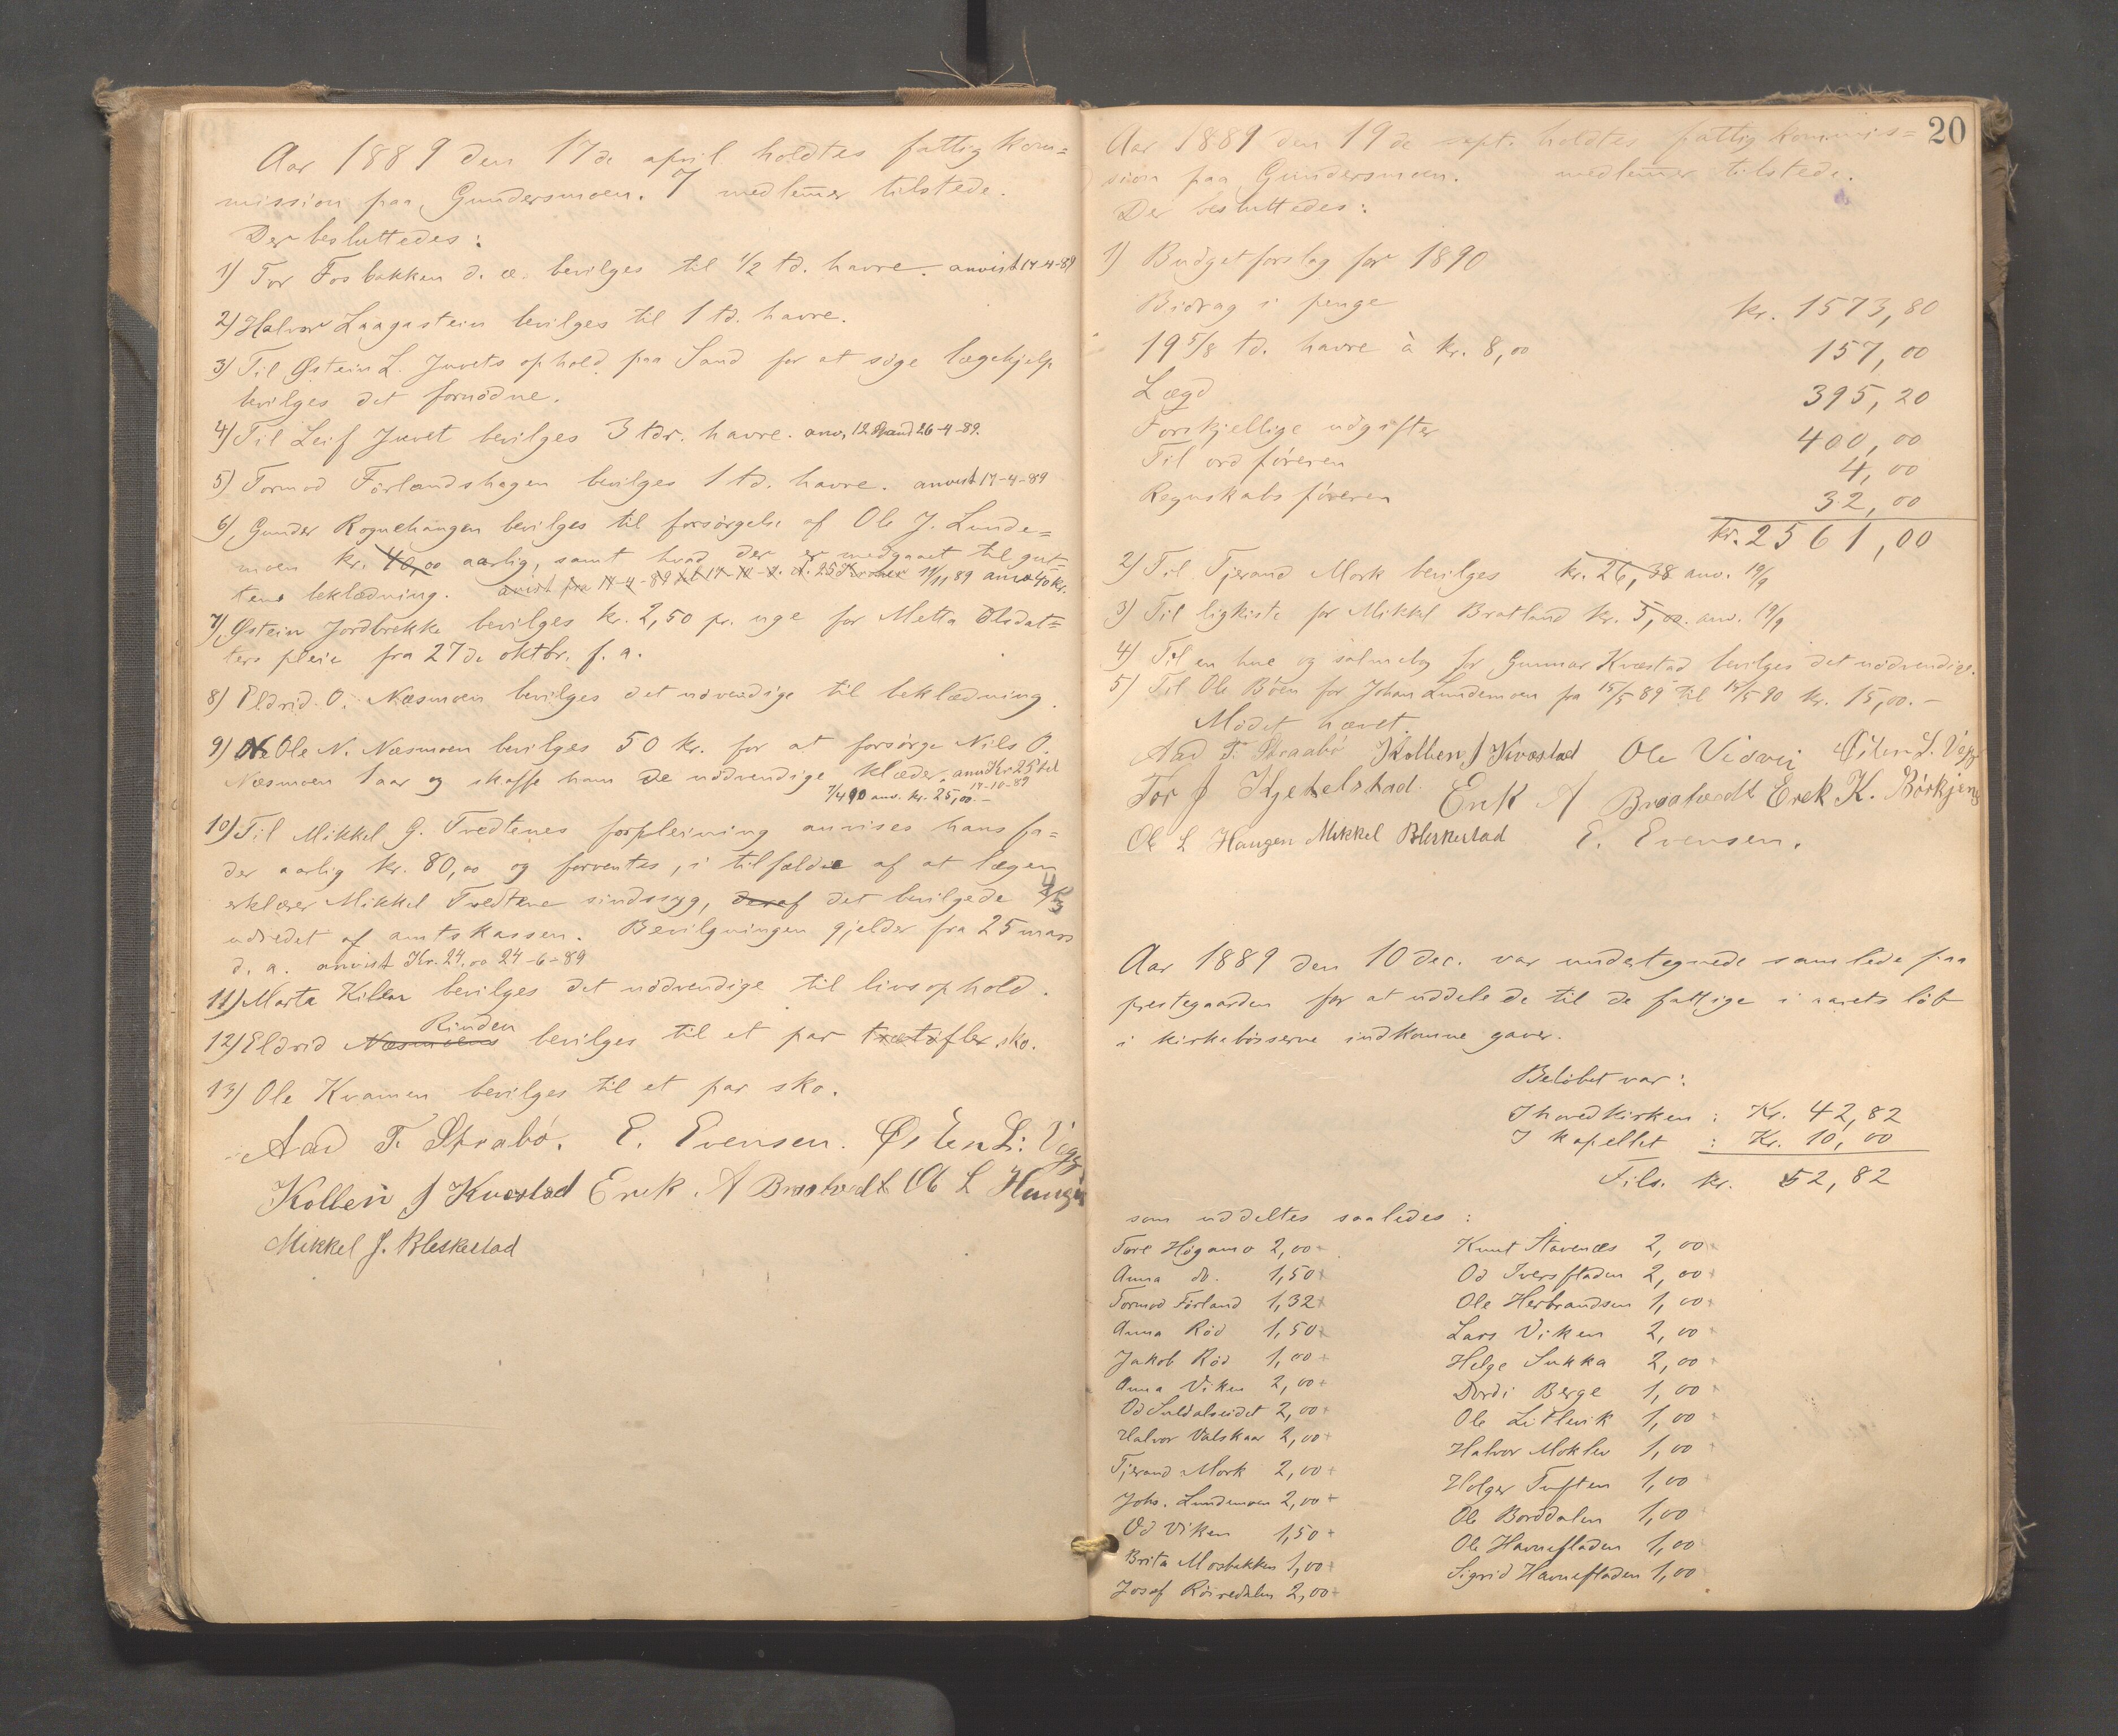 Aar 1889 den 17de april holdtes fattigkom=
mission paa Gundersmoen. 7 medlemer tilstede.
Der besluttedes:
1) Tor Fosbakken d. æ. bevilges til 1/2 td. havre. anvist 17-4-89
2) Halvor Laagastein bevilges til 1 td. havre.
3) Til Østein L. Juvets ophold paa Sand for at søge lægehjelp
bevilges det fornødne.
4) Til Leif Juvet bevilges 3 tdr. havre. anv. 12 26-4-89.
5) Tormod Førlandshagen bevilges 1 td. havre. anvist 17-4-89
6) Gunder Rognehaugen bevilges til forsørgelse af Ole J. Lunde=
moen kr. 40,00 aarlig, samt hvad der er medgaaet til gut=
tens beklædning. anvist fra 11/11 89 anv. 40 kr.
7) Østein Jordbrekke bevilges kr. 2,50 pr. uge for Metta Olsdat=
ters pleie fra 27de oktbr. f. a.
8) Eldrid O. Næsmoen bevilges det nødvendige til beklædning.
9) Ole N. Næsmoen bevilges 50 kr. for at forsørge Nils O.
Næsmoen 1 aar og skaffe ham de nødvendige klæder. anv. Kr 25
17-10-89
7/4 90 anv. kr. 25,00.-
10) Til Mikkel G. Tvedtenes forpleining anvises hans fa=
der aarlig kr. 80,00 og forventes, i tilfælde af at lægen
erklærer Mikkel Tvedtene sindssyg, deraf det bevilgede
udredet af amtskassen. Bevilgningen gjelder fra 25 mars
d. a. anvist Kr. 24,00 24-6-89
11) Marta Kilen bevilges det nødvendige til livsophold.
Rinden
12) Eldrid Næsmoens bevilges til et par trætøfler sko.
13) Ole Kvamen bevilges til et par sko.
Aad T. Straabø. E. Evensen. Østen L. Vegg
Kolbein J Kvæstad Erik A Braatvedt Ole L Haugen
Mikkel J. Bleskestad
20
Aar 1889 den 19de sept. holdtes fattigkommis=
sion paa Gundersmoen. medlemer tilstede.
Der besluttedes:
1) Budgetforslag for 1890
Bidrag i penge kr. 1573,80
19 5/8 td. havre à kr. 8,00 157,00
Lægd 395,20
Forskjellige udgifter 400,00
Til ordføreren 4,00
Regnskabsføreren 32,00
kr. 2561,00
2) Til Tjerand Mork bevilges kr. 26,38 anv. 19/9
3) Til ligkiste for Mikkel Bratland kr. 5,00. anv. 19/9
4) Til en hue og salmebog for Gunnar Kvæstad bevilges det nødvendige.
5) Til Ole Bøen for Johan Lundemoen fra 15/5 89 til 15/5 90 kr. 15,00.-
Mødet hævet.
Aad T. Straabø Kolben J Kvæstad Ole Vidvei Østen L. Vegg
Tor J Kjetelstad. Erik A Braatvedt Erek K. Børkjenes
Ole L Haugen Mikkel Bleskestad E. Evensen.
Aar 1889 den 10 dec. var undertegnede samlede paa
prestegaarden for at uddele de til de fattige i aarets løb
i kirkebøsserne indkomne gaver.
Beløbet var:
I hovedkirken: Kr. 42,82
I kapellet : Kr. 10,00
Tils. kr. 52,82
som uddeltes saaledes:
Tore Høgamo 2,00
Anna do. 1,50
Tormod Førland 1,32
Anna Rød 1,50
Jakob Rød 1,00
Anna Viken 2,00
Od Suldalseidet 2,00
Halvor Valskaar 2,00
Tjerand Mork 2,00
Johs. Lundemoen 2,00
Od Viken 1,50
Brita Mosbakken 1,00
Josef Røiredalen 2,00
Knut Stavenæs 2,00
Od Iversfladen 2,00
Ole Herbrandsen 1,00
Lars Viken 2,00
Helge Sukka 2,00
Dordi Berge 1,00
Ole Litlevik 1,00
Halvor Moklev 1,00
Holger Tuften 1,00
Ole Borddalen 1,00
Ole Havnefladen 1,00
Sigrid Havnefladen 1,00